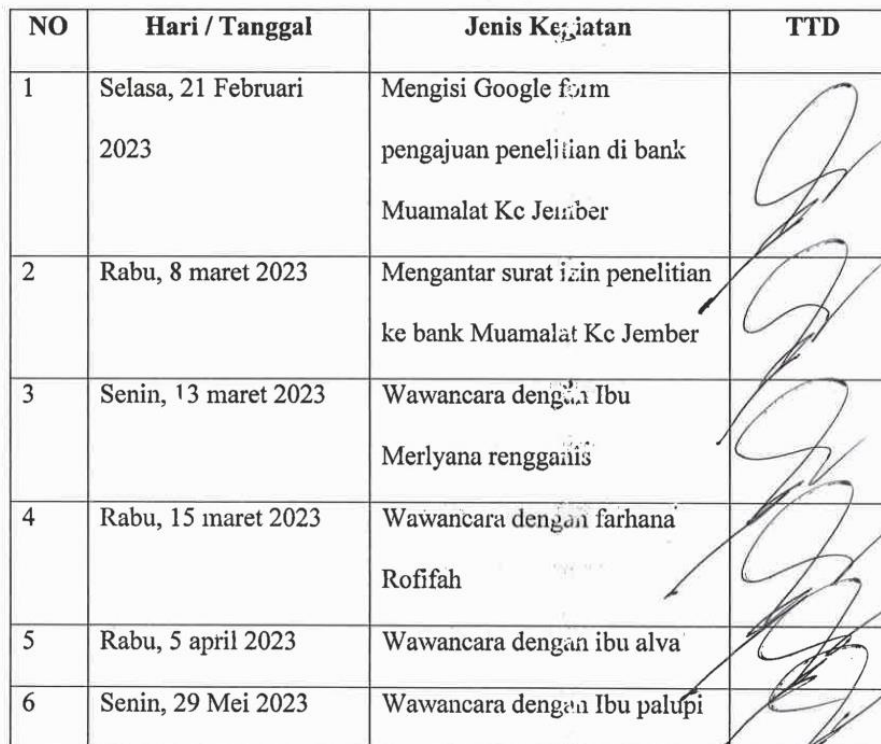 NO Hari / Tanggal Jenis Kegiatan TTD
1 Selasa, 21 Februari Mengisi Google form
2023 pengajuan penelitian di bank
Muamalat Kc Jember
2 Rabu, 8 maret 2023 Mengantar surat izin penelitian
ke bank Muamalat Kc Jember
3 Senin, 13 maret 2023 Wawancara dengan Ibu
Merlyana rengganis
4 Rabu, 15 maret 2023 Wawancara dengan farhana
Rofifah
5 Rabu, 5 april 2023 Wawancara dengan ibu alva
6 Senin, 29 Mei 2023 Wawancara dengan Ibu palupi